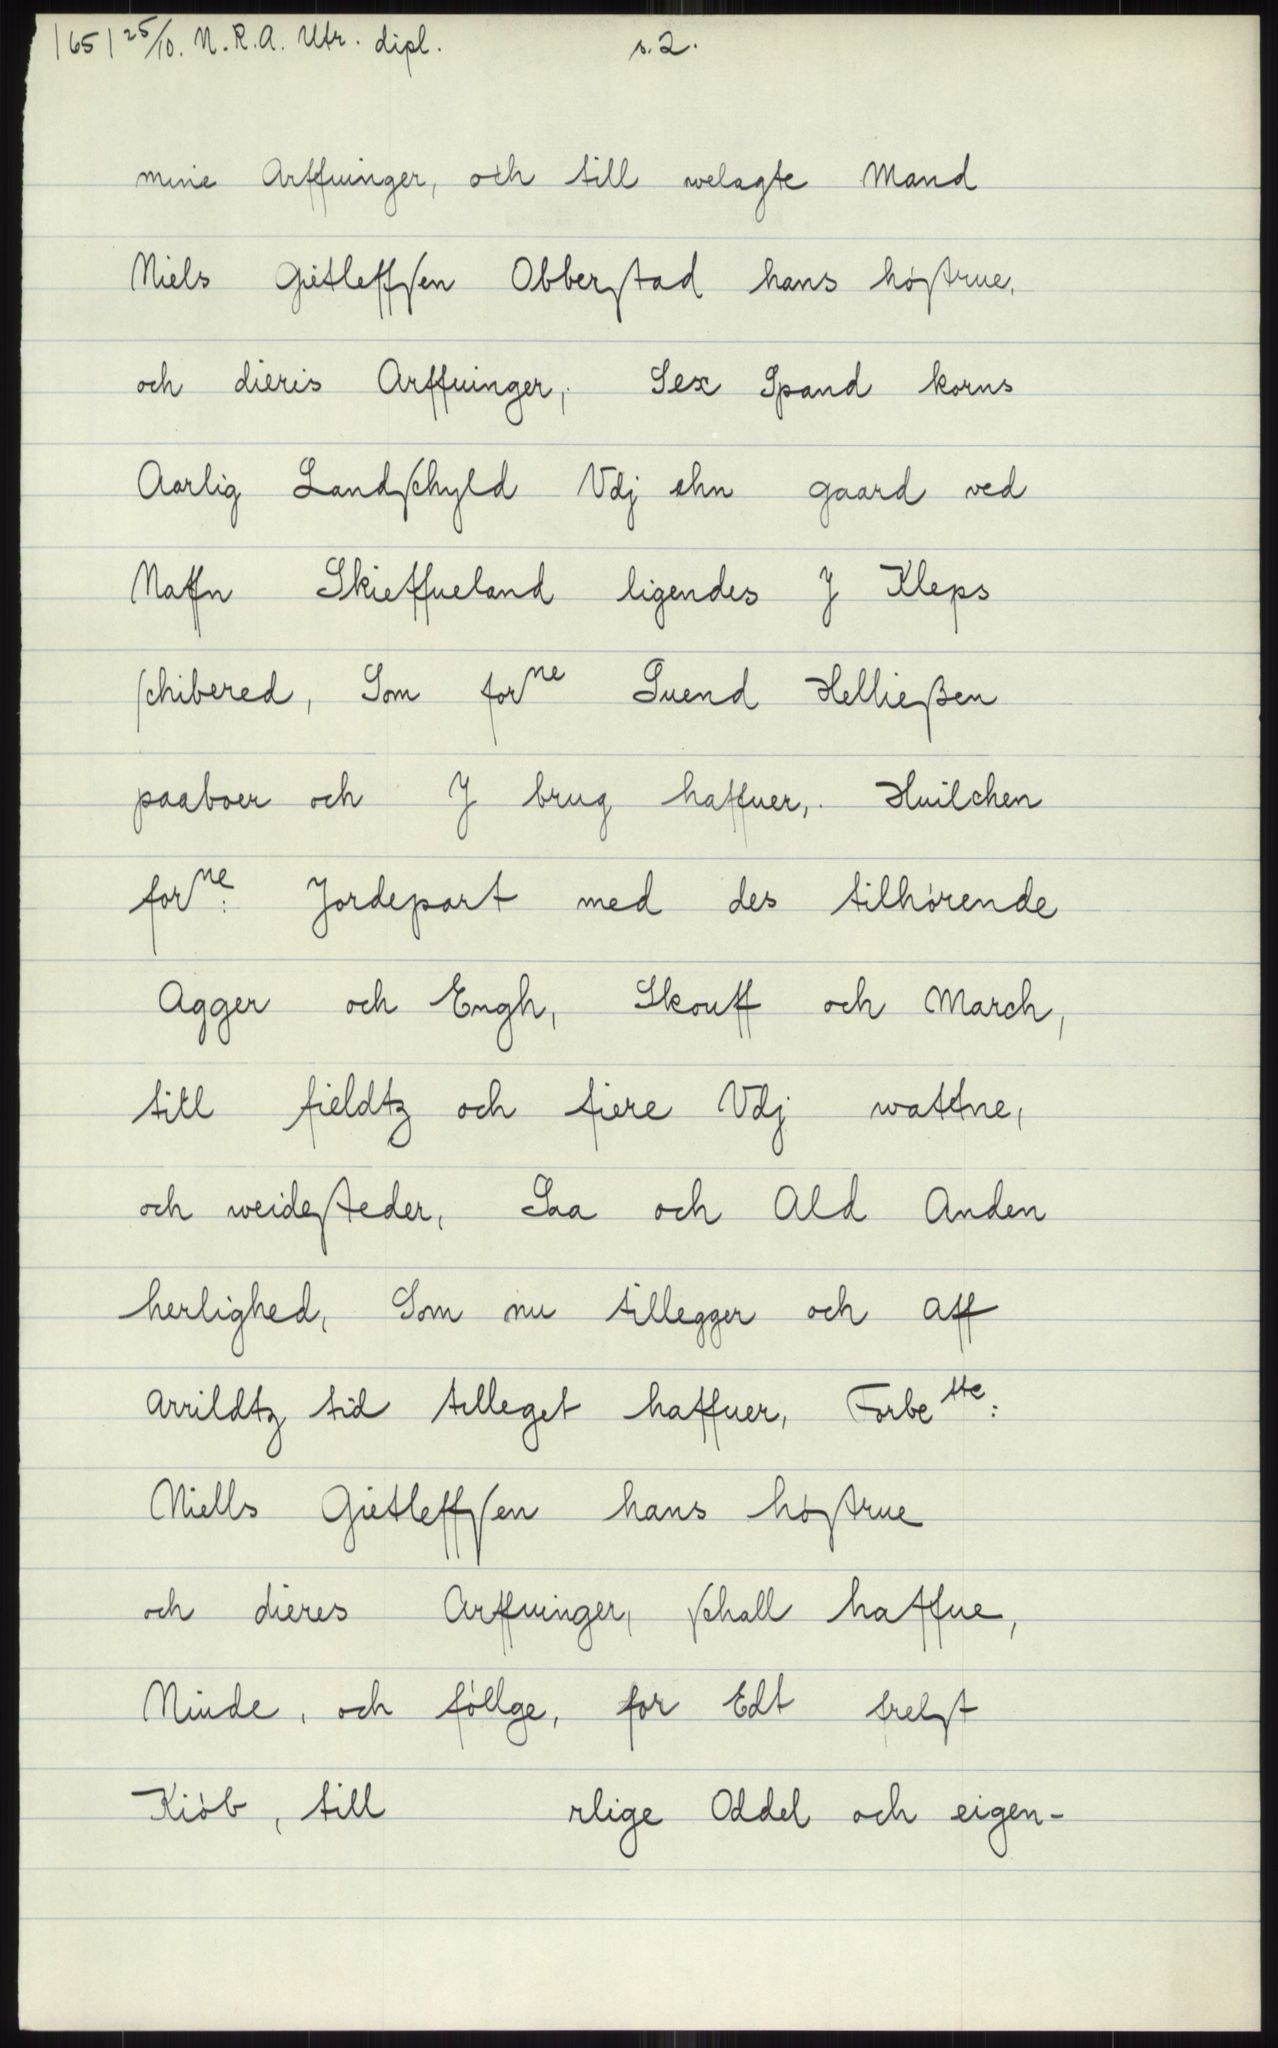 1651 25/10. N.R.A. Utr. dipl. s. 2.
mine Arffuinger, och till welagte Mand
Niels Gietleffsen Obberstad hans høstrue,
och dieris Arffuinger, Sex Spand korns
Aarlig Landschyld Vdj ehn gaard ved
Naffn Skieffueland ligendes J Kleps
schibered, Som forne Suend Helließen
paaboer och J brug haffuer, Huilchen
forne: Jordepart med des tilhørende
Agger och Engh, Skouff och March,
till fieldtz och fiere Vdj wattne,
och weidesteder, Saa och Ald Anden
herlighed, Som nu tillegger och aff
arrildtz tid tilleget haffuer, Forbette:
Niells Gietleffsen hans høstrue
och dieres Arffuinger, schall haffue,
Niude, och føllge, for Edt frelst
Kiøb, till rlige Oddel och eigen-